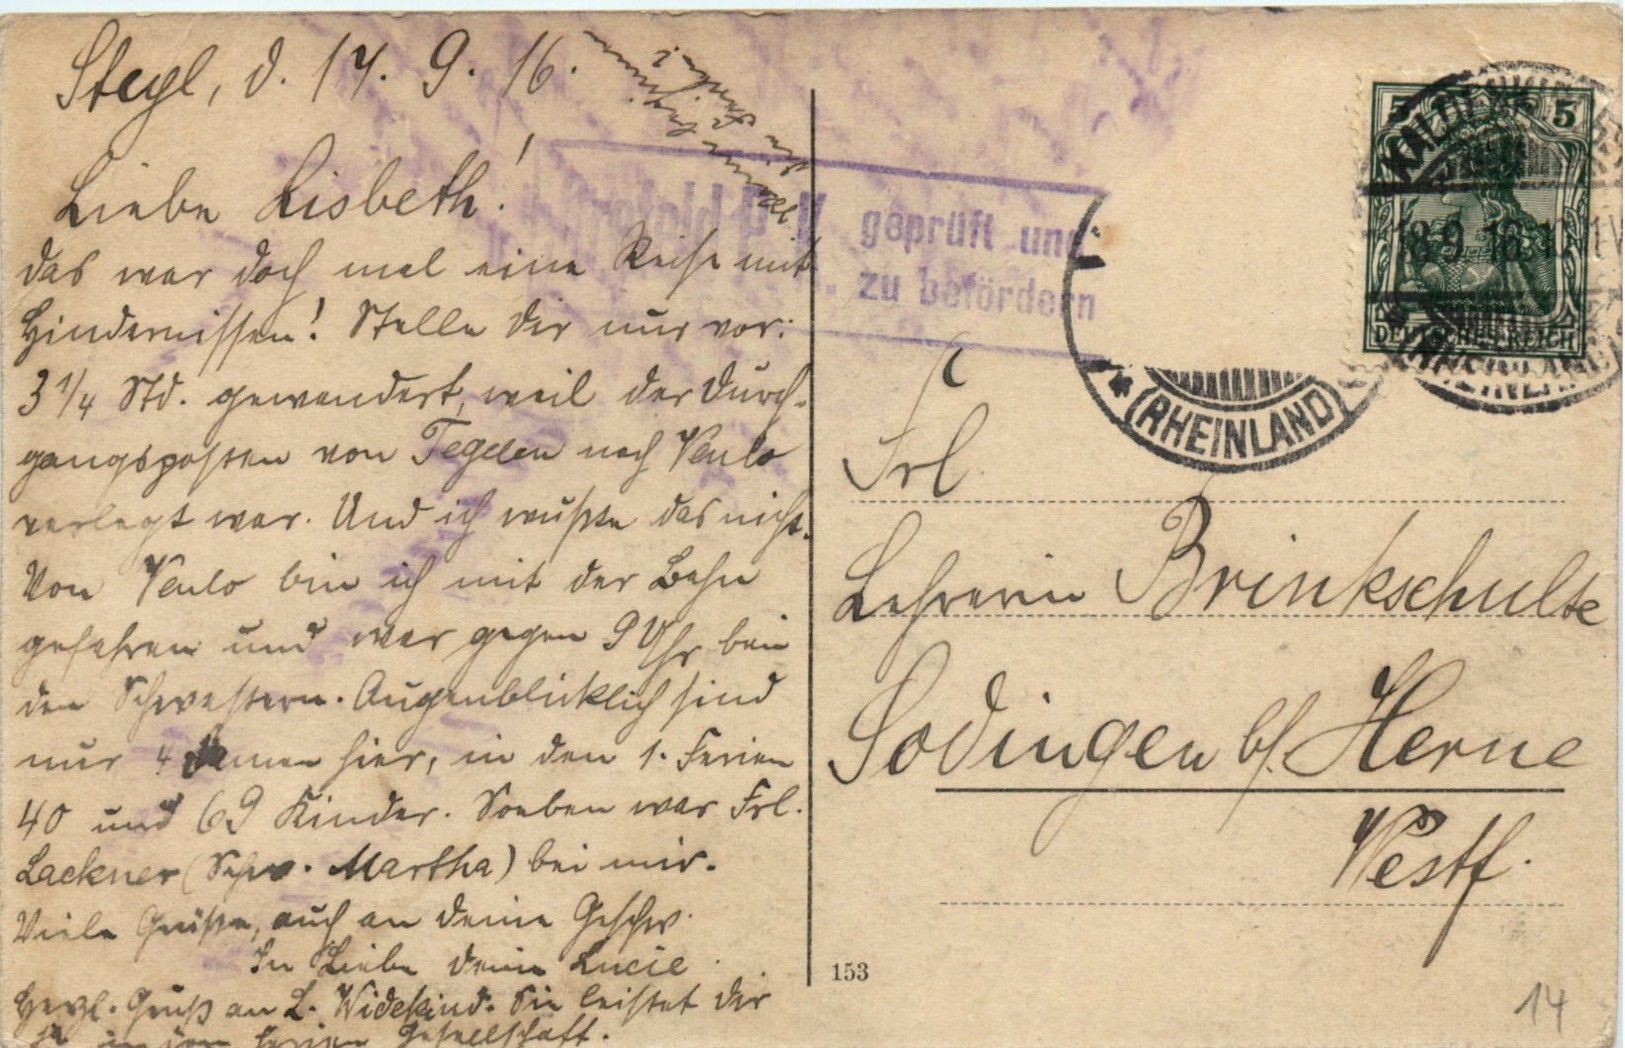 Stegl, d. 17. 9. 16.
Liebe Lisbeth!
das war doch mal eine Reise mit
Hindernissen! Stelle dir nur vor:
3 1/4 Std. gewandert, weil der Durch-
gangsposten von Tegelen nach Venlo
verlegt war. Und ich wußte das nicht.
Von Venlo bin ich mit der Bahn
gefahren und war gegen 9 Uhr bei
den Schwestern. Augenblicklich sind
nur 4 Damen hier, in den 1. Ferien
40 und 69 Kinder. Soeben war Frl.
Lackner (Schw. Martha) bei mir.
Viele Grüße, auch an deine Geschw.
In Liebe deine Lucie.
Herzl. Gruß an L. Widekind. Sie leistet dir
ja in den Ferien Gesellschaft.
geprüft und
zu befördern
5 5
DEUTSCHES REICH
KALDENKIRCHEN
18.9.16
(RHEINLAND)
(RHEINLAND)
Frl.
Lehrerin Brinkschulte
Sodingen b/. Herne
Westf.
153
14